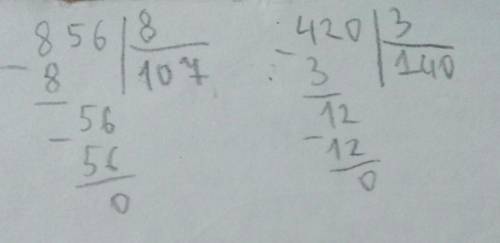 856 | 8
- 8 | 107
- 56
56
0
- 420 | 3
3 | 140
12
- 12
0